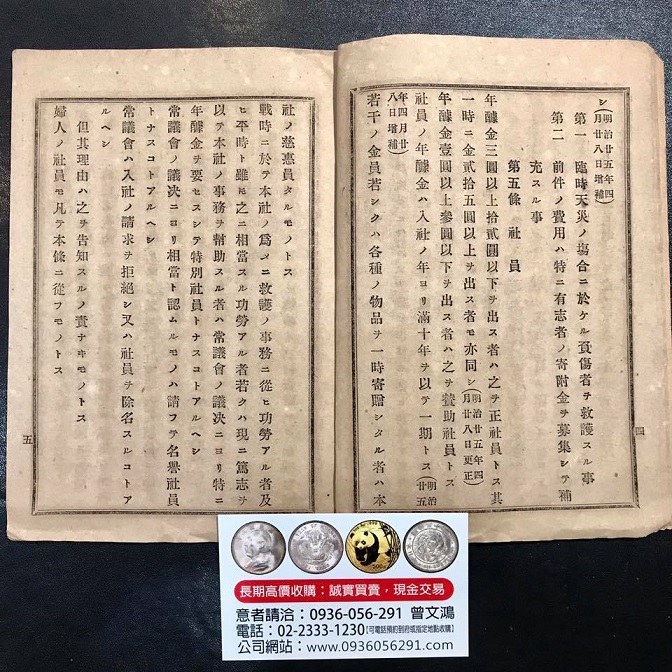 シ(明治廿五年四月廿八日增補)
第一 臨時天災ノ塲合ニ於ケル負傷者ヲ救護スル事
第二 前件ノ費用ハ特ニ有志者ノ寄附金ヲ募集シテ補
充スル事
第五條 社員
年醵金三圓以上拾貳圓以下ヲ出ス者ハ之ヲ正社員トス其
一時ニ金貳拾五圓以上ヲ出ス者モ亦同シ(明治廿五年四月廿八日更正)
年醵金壹圓以上參圓以下ヲ出ス者ハ之ヲ賛助社員トス
社員ノ年醵金ハ入社ノ年ヨリ滿十年ヲ以テ一期トス(明治廿五
年四月廿八日增補)
若干ノ金員若シクハ各種ノ物品ヲ一時寄贈シタル者ハ本
四
社ノ慈惠員タルモノトス
戰時ニ於テ本社ノ爲メニ救護ノ事務ニ從ヒ功勞アル者及
ヒ平時ト雖モ之ニ相當スル功勞アル者若クハ現ニ篤志ヲ
以テ本社ノ事務ヲ幇助スル者ハ常議會ノ議决ニヨリ特ニ
年醵金ヲ要セスシテ特別社員トナスコトアルヘシ
常議會ノ議决ニヨリ相當ト認ムルモノハ請フテ名譽社員
トナスコトアルヘシ
常議會ハ入社ノ請求ヲ拒絕シ又ハ社員ヲ除名スルコトア
ルヘシ
但其理由ハ之ヲ告知スルノ責ナキモノトス
婦人ノ社員モ凡テ本條ニ從フモノトス
五
長期高價收購：誠實買賣，現金交易
意者請洽：0936-056-291 曾文鴻
電話：02-2333-1230【可電話預約到府或指定地點收購】
公司網站：www.0936056291.com